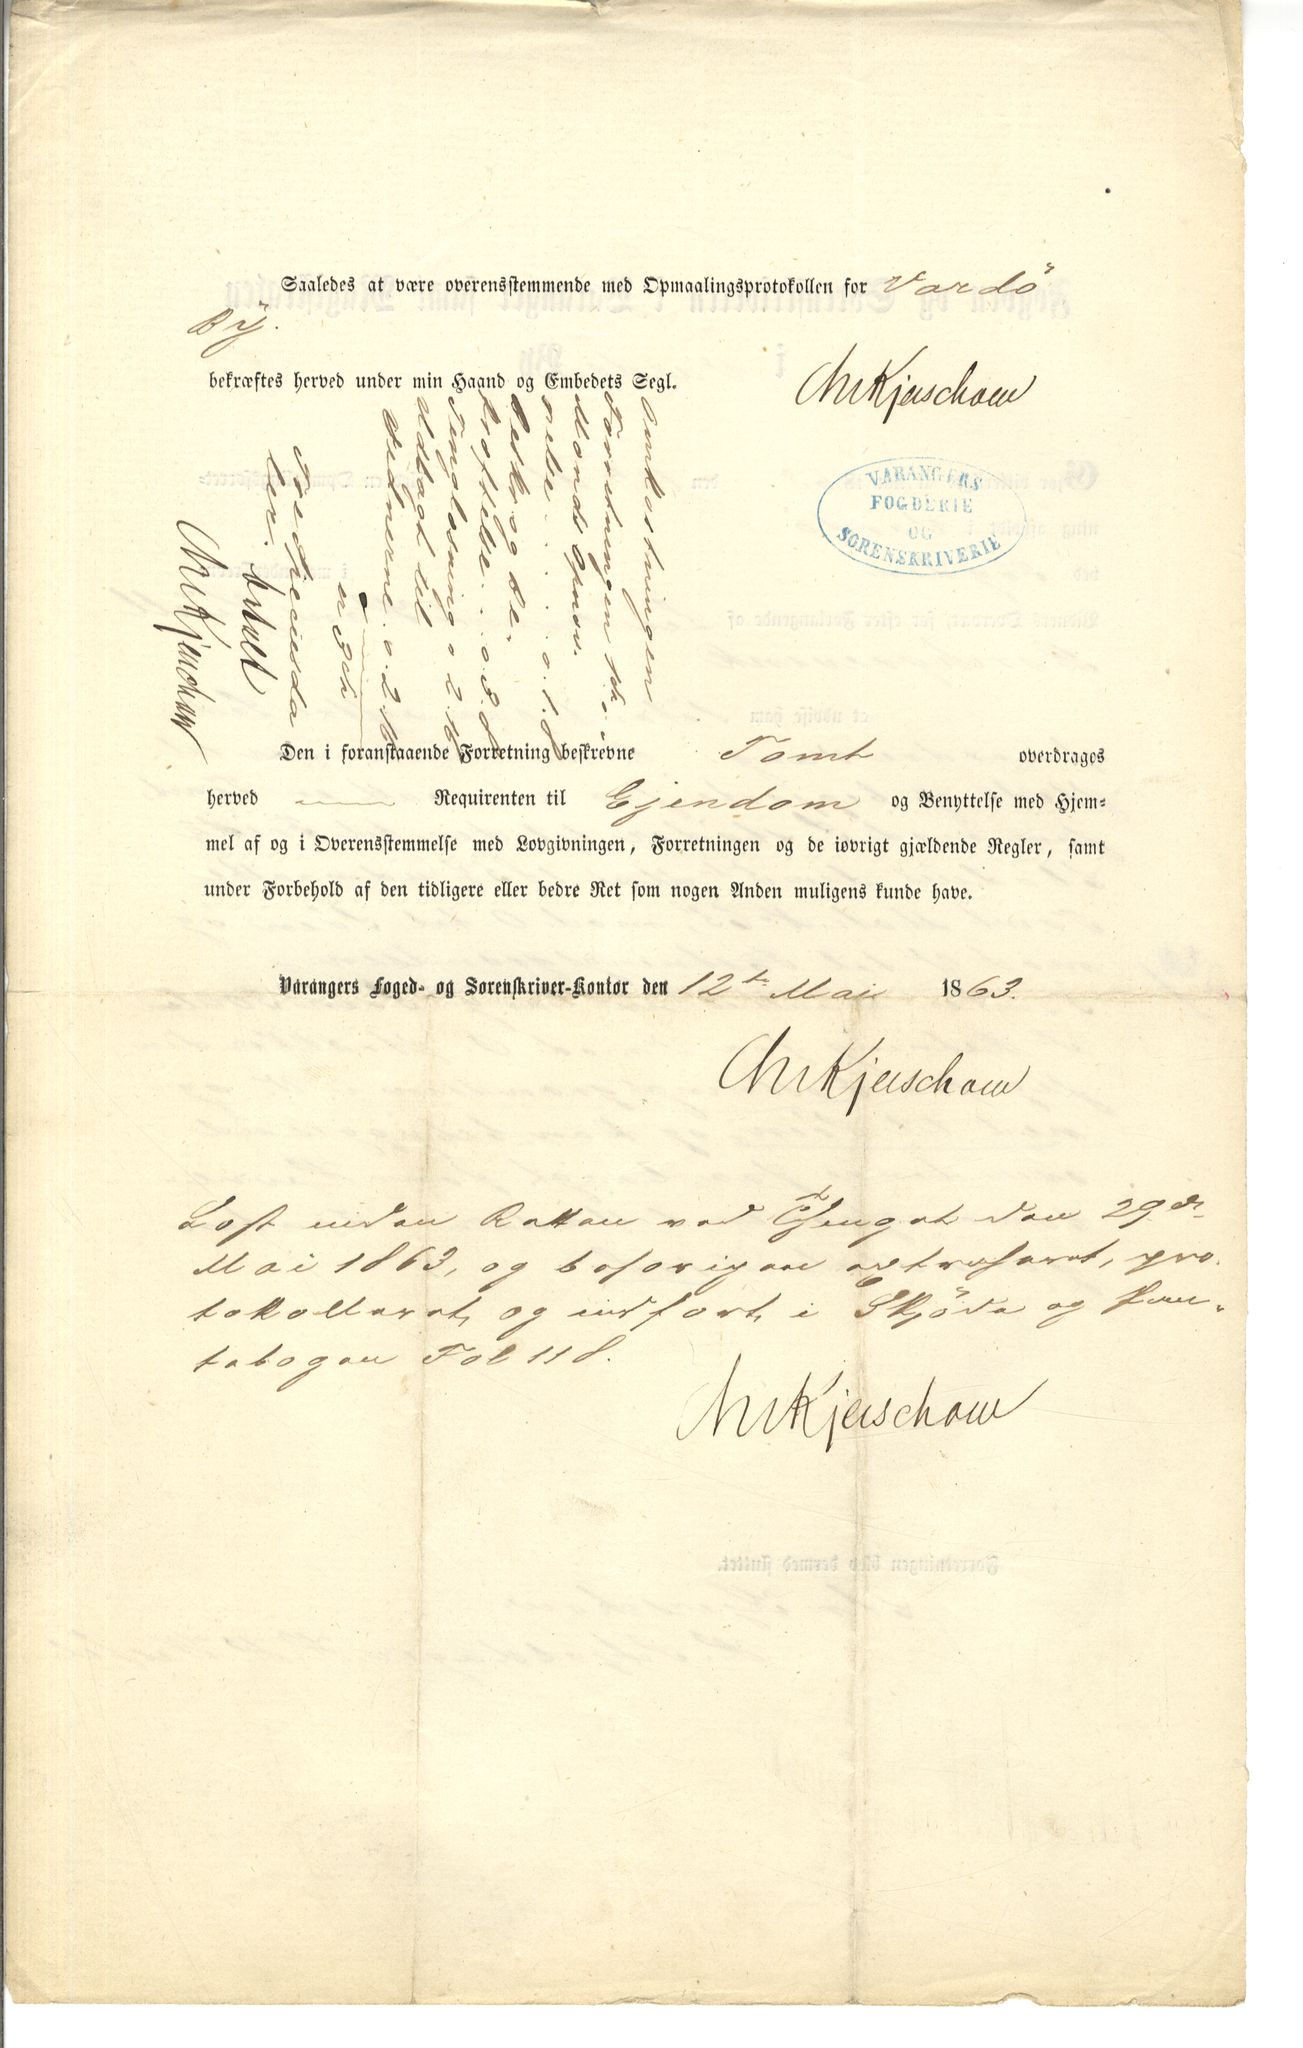 Saaledes at være overensstemmende med Opmaalingsprotokollen for Vardö
By.
bekræftes herved under min Haand og Embedets Segl.
Chr Kjerschow
VARANGERS
FOGDERIE
OG
SORENSKRIVERIE
Omkostningen
Forretningen
Mandsopnæv-
nelse . . . . o. 1. 8
Beskr. og Be-
kræftelse . . o. 3. 8
Tinglæsning o 2. 16
Udlagt til
Vidnerne. o. 2. 16
er 3
Tre Speciesda
ler. betalt
Chr Kjerschow
Den i foranstaaende Forretning beskrevne Tomt overdrages
herved Requirenten til Ejendom og Benyttelse med Hjem-
mel af og i Overensstemmelse med Lovgivningen, Forretningen og de iøvrigt gjældende Regler, samt
under Forbehold af den tidligere eller bedre Ret som nogen Anden muligens kunde have.
Varangers Foged- og Sorenskriver-Kontor den 12te Mai 1863.
Chr Kjerschow
Læst inden Retten ved Thinget den 29de
Mai 1863, og beforigen extraheret, pro-
tokolleret og indført i Skjöde og Pan-
tebogen Fol 118.
Chr Kjerschow